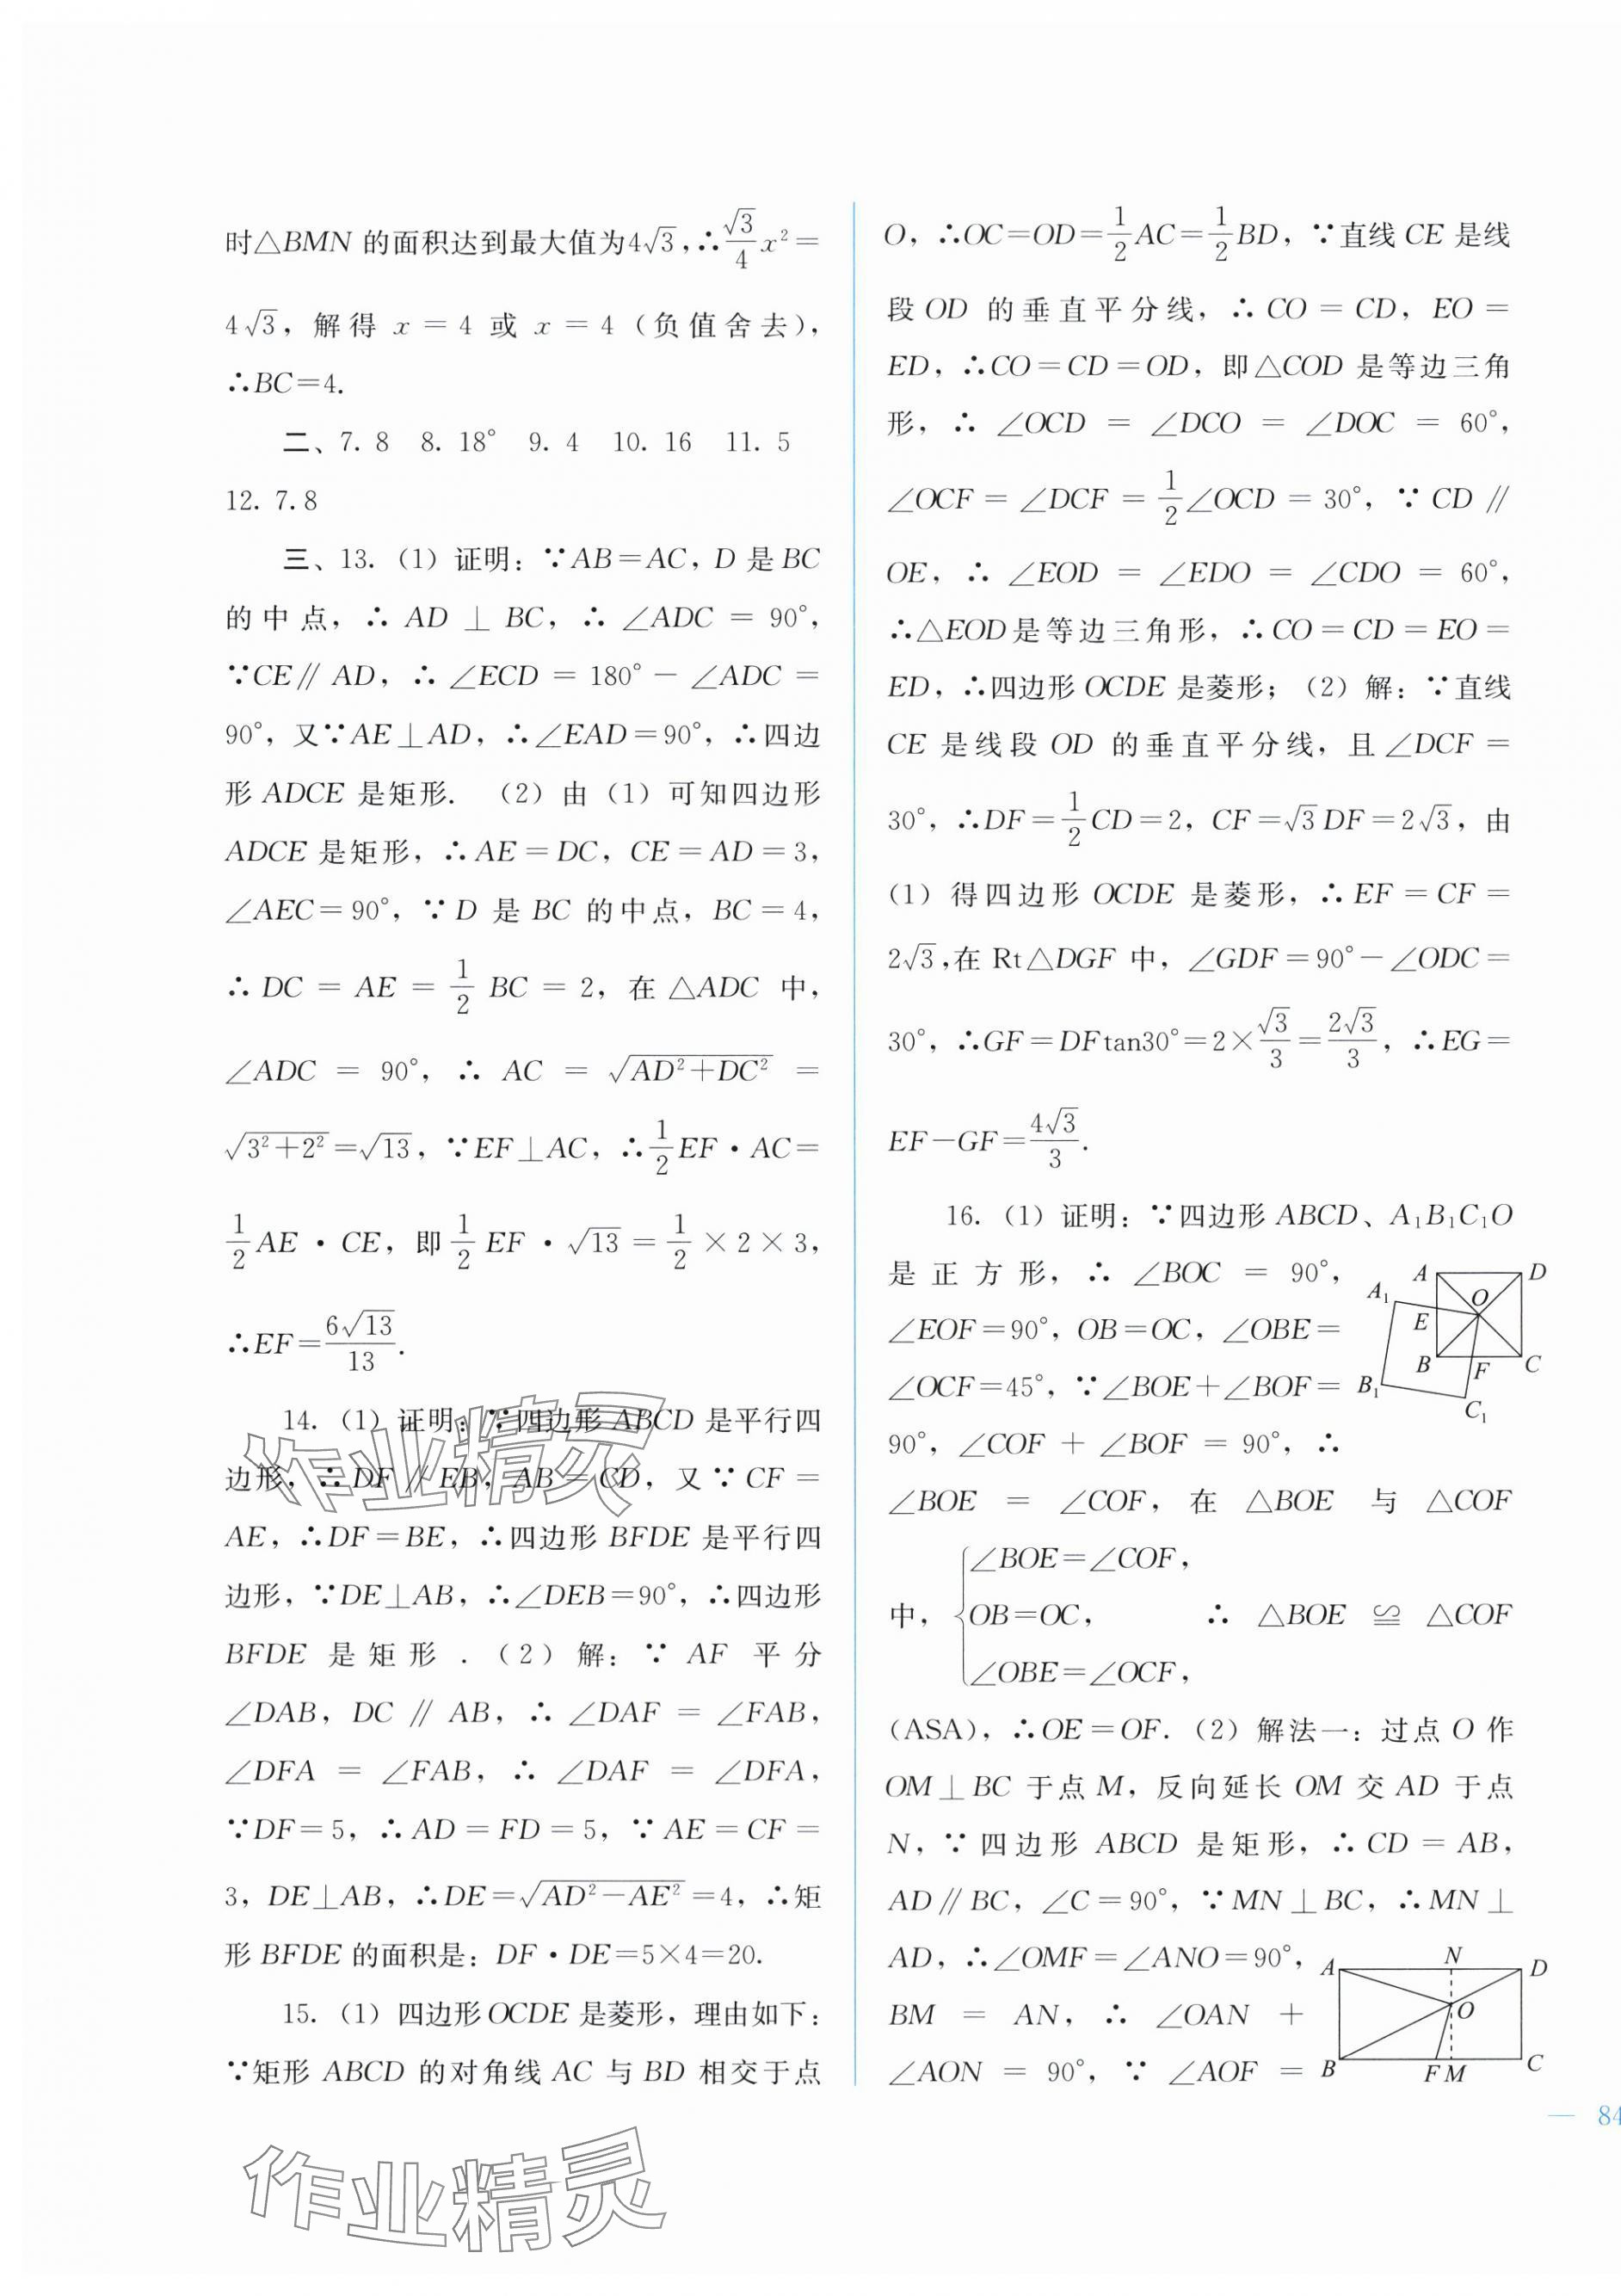 时△BMN 的面积达到最大值为4√3,∴√3/4 x²=
4√3, 解得 x=4 或 x=4(负值舍去),
∴BC=4.
二、7. 8 8. 18° 9. 4 10. 16 11. 5
12. 7.8
三、13. (1) 证明: ∵AB=AC, D 是 BC
的中点, ∴AD⊥BC, ∴∠ADC=90°,
∵CE∥AD, ∴∠ECD=180°-∠ADC=
90°, 又∵AE⊥AD, ∴∠EAD=90°, ∴四边
形 ADCE 是矩形. (2) 由 (1) 可知四边形
ADCE 是矩形, ∴AE=DC, CE=AD=3,
∠AEC=90°, ∵D 是 BC 的中点, BC=4,
∴DC=AE=1/2 BC=2, 在△ADC 中,
∠ADC=90°, ∴AC=√(AD²+DC²)=
√(3²+2²)=√13, ∵EF⊥AC, ∴1/2 EF·AC=
1/2 AE·CE, 即 1/2 EF·√13=1/2×2×3,
∴EF=6√13/13.
14. (1) 证明: ∵四边形 ABCD 是平行四
边形, ∴DF∥EB, AB=CD, 又∵CF=
AE, ∴DF=BE, ∴四边形 BFDE 是平行四
边形, ∵DE⊥AB, ∴∠DEB=90°, ∴四边形
BFDE 是矩形. (2) 解: ∵AF 平分
∠DAB, DC∥AB, ∴∠DAF=∠FAB,
∠DFA=∠FAB, ∴∠DAF=∠DFA,
∵DF=5, ∴AD=FD=5, ∵AE=CF=
3, DE⊥AB, ∴DE=√(AD²-AE²)=4, ∴矩
形 BFDE 的面积是: DF·DE=5×4=20.
15. (1) 四边形 OCDE 是菱形, 理由如下:
∵矩形 ABCD 的对角线 AC 与 BD 相交于点
O, ∴OC=OD=1/2 AC=1/2 BD, ∵直线 CE 是线
段 OD 的垂直平分线, ∴CO=CD, EO=
ED, ∴CO=CD=OD, 即△COD 是等边三角
形, ∴∠OCD=∠DCO=∠DOC=60°,
∠OCF=∠DCF=1/2∠OCD=30°, ∵CD∥
OE, ∴∠EOD=∠EDO=∠CDO=60°,
∴△EOD是等边三角形, ∴CO=CD=EO=
ED, ∴四边形 OCDE 是菱形; (2) 解: ∵直线
CE 是线段 OD 的垂直平分线, 且∠DCF=
30°, ∴DF=1/2 CD=2, CF=√3 DF=2√3, 由
(1) 得四边形 OCDE 是菱形, ∴EF=CF=
2√3,在 Rt△DGF 中, ∠GDF=90°-∠ODC=
30°, ∴GF=DFtan30°=2×√3/3=2√3/3, ∴EG=
EF-GF=4√3/3.
16. (1) 证明: ∵四边形 ABCD、A₁B₁C₁O
是正方形, ∴∠BOC=90°,
∠EOF=90°, OB=OC, ∠OBE=
∠OCF=45°, ∵∠BOE+∠BOF=
90°, ∠COF+∠BOF=90°, ∴
∠BOE=∠COF, 在△BOE 与△COF
∠BOE=∠COF,
中, { OB=OC, ∴△BOE≌△COF
∠OBE=∠OCF,
(ASA), ∴OE=OF. (2) 解法一: 过点 O 作
OM⊥BC 于点 M, 反向延长 OM 交 AD 于点
N, ∵四边形 ABCD 是矩形, ∴CD=AB,
AD∥BC, ∠C=90°, ∵MN⊥BC, ∴MN⊥
AD, ∴∠OMF=∠ANO=90°,
BM=AN, ∴∠OAN+
∠AON=90°, ∵∠AOF=
A D
A₁ O
E
B F C
B₁
C₁
A N D
O
B F M C
— 84
作业精灵
作业精灵